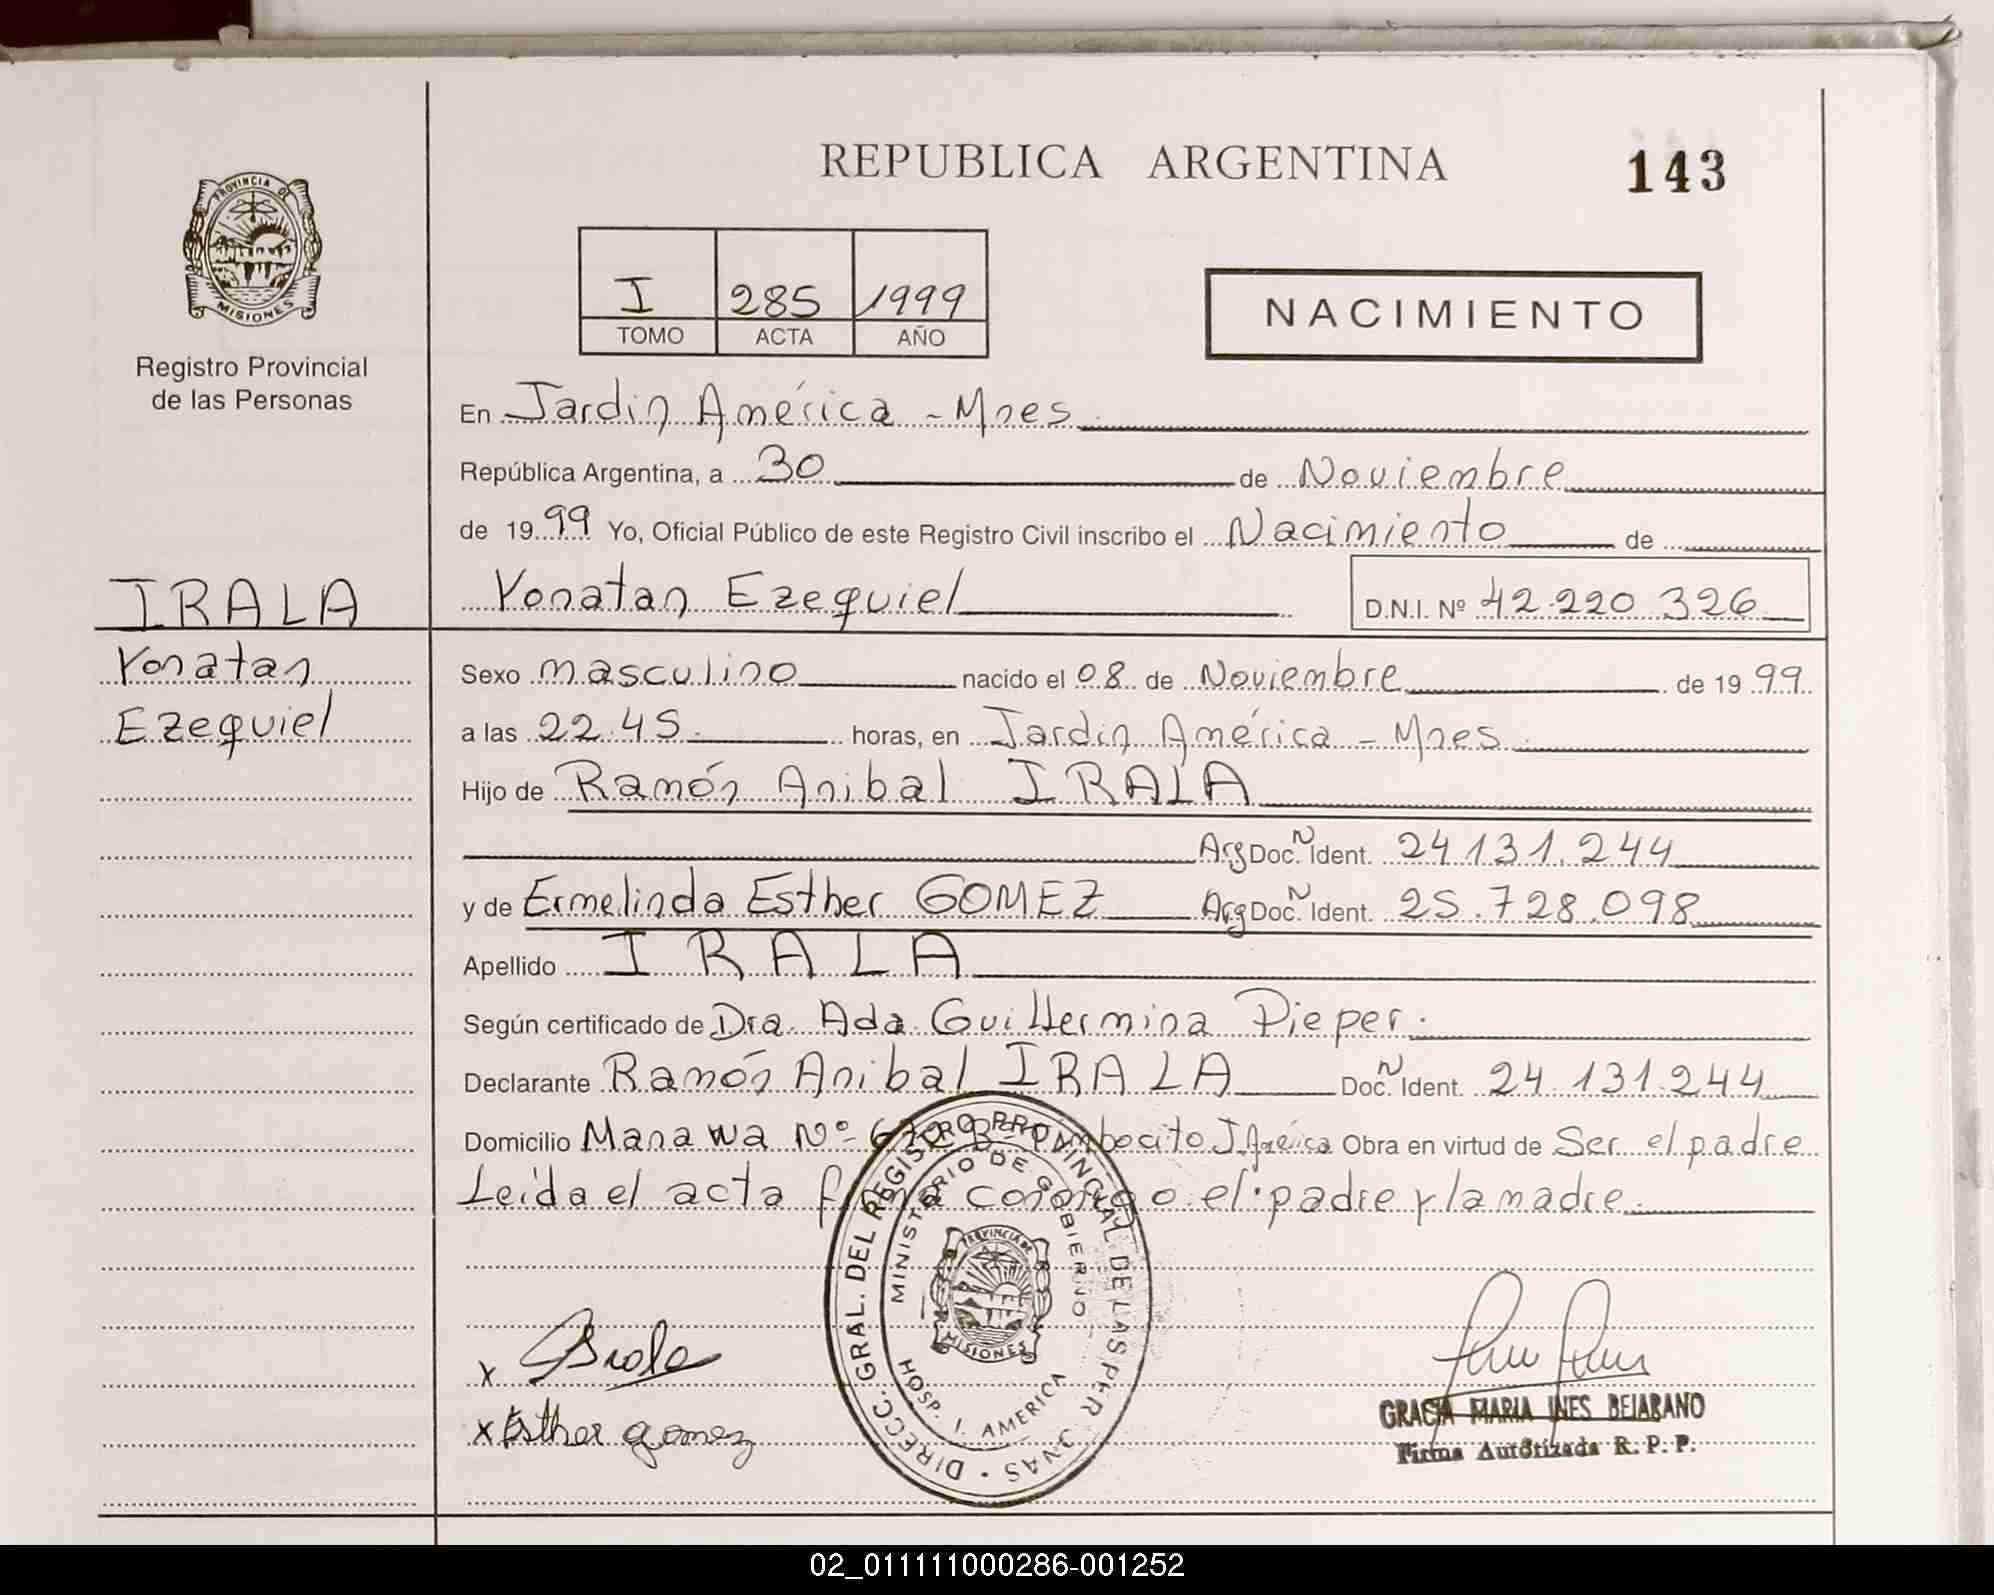 REPUBLICA ARGENTINA
143
PROVINCIA DE
MISIONES
Registro Provincial
de las Personas
I 285 1999
TOMO ACTA AÑO
NACIMIENTO
En Jardin América - Mnes.
República Argentina, a 30 de Noviembre
de 1999 Yo, Oficial Público de este Registro Civil inscribo el Nacimiento de
IRALA
Yonatan Ezequiel D.N.I. Nº 42.220.326
Yonatan
Ezequiel
Sexo masculino nacido el 08 de Noviembre de 1999
a las 22.45. horas, en Jardin América - Mnes.
Hijo de Ramón Anibal IRALA
Arg Doc. N Ident. 24.131.244
y de Ermelinda Esther GOMEZ Arg Doc. N Ident. 25.728.098
Apellido IRALA
Según certificado de Dra. Ada Guillermina Pieper.
Declarante Ramón Anibal IRALA Doc. N Ident. 24.131.244
Domicilio Manawa Nº 632 Bº J. América Obra en virtud de Ser el padre
Leída el acta firma conmigo el padre y la madre.
DIRECC. GRAL. DEL REGISTRO PROVINCIAL DE LAS PERSONAS
MINISTERIO DE GOBIERNO
PROVINCIA DE
MISIONES
HOSP. J. AMERICA
x Irala
x Esther gomez
GRACIA MARIA INES BEJARANO
Firma Autorizada R. P. P.
02_011111000286-001252